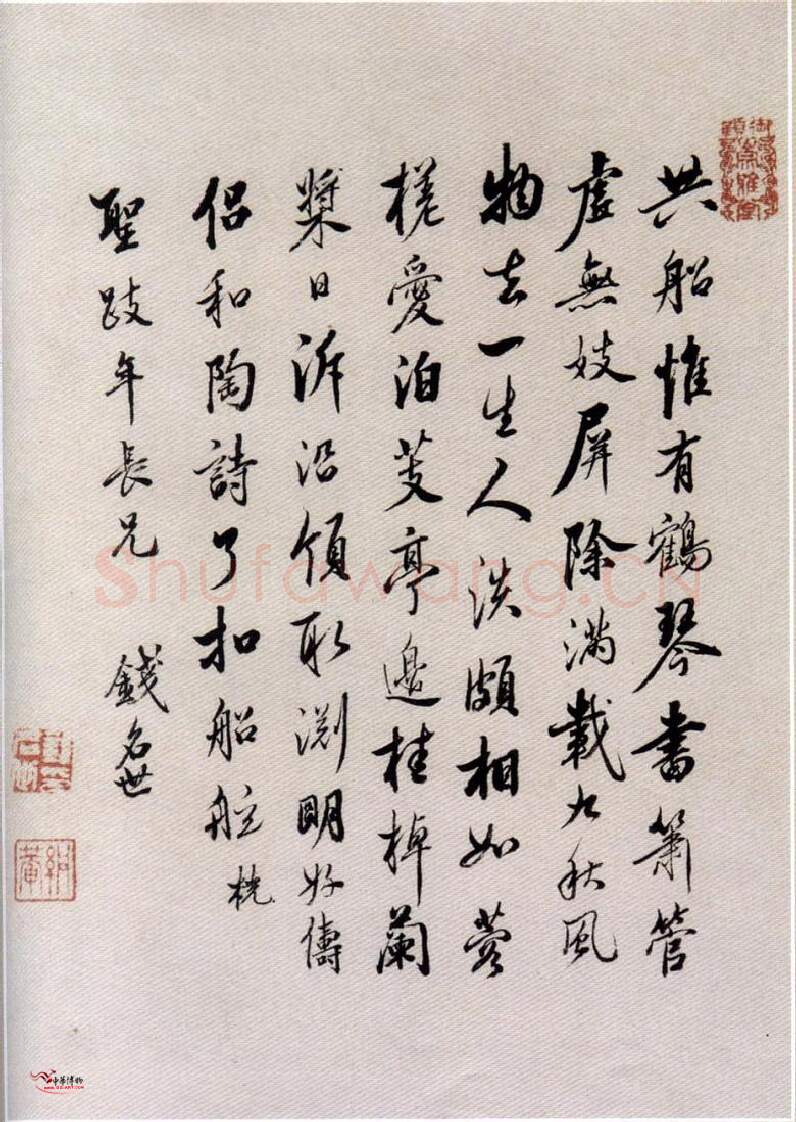 共船惟有鶴琴書簫管
虛無妓屏除滿載九秋風
物去一生人淡頗相如蓉
槎愛泊芰亭邊桂棹蘭
槳日泝沿領取淵明好儔
侶和陶詩了扣船舷
聖跂年長兄 錢名世
絅菴
Shufawang.cn
中華博物